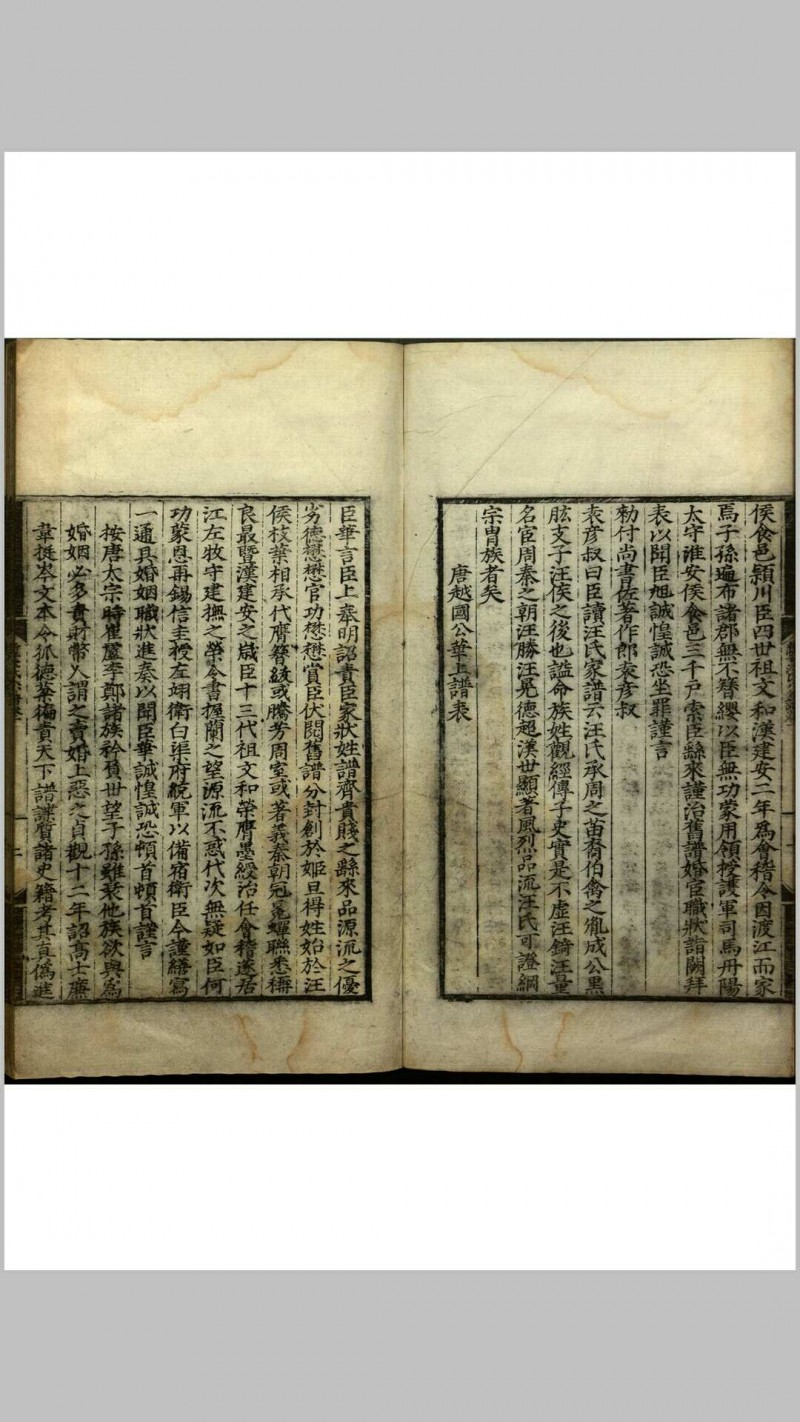 侯食邑潁川臣四世祖文和漢建安二年為會稽令因渡江而家
焉子孫遍布諸郡無不簪纓以臣無功蒙用領授護軍司馬丹陽
太守淮安侯食邑三千戶索臣繇來謹治舊譜婚宦職狀詣闕拜
表以聞臣旭誠惶誠恐坐罪謹言
勑付尚書佐著作郎袁彥叔
袁彥叔曰臣讀汪氏家譜云汪氏承周之苗裔伯禽之胤成公黑
肱支子汪侯之後也謚命族姓觀經傳子史實是不虛汪錡汪量
名宦周秦之朝汪勝汪冕德超漢世顯著風烈品流汪氏可證綱
宗胄族者矣
唐越國公華上譜表
臣華言臣上奉明詔責臣家狀姓譜齊貴賤之繇來品源流之優
劣德懋懋官功懋懋賞臣伏閱舊譜分封創於姬旦得姓始於汪
侯枝葉相承代膺簪紱或騰芳周室或著義秦朝冠冕蟬聯悉稱
良最暨漢建安之歲臣十三代祖文和榮膺墨綬治任會稽遂居
江左牧守建撫之榮令書握蘭之望源流不惑代次無疑如臣何
功蒙恩再錫信圭授左翊衛白渠府統軍以備宿衛臣今謹繕寫
一通具婚姻職狀進奏以聞臣華誠惶誠恐頓首頓首謹言
按唐太宗時崔盧李鄭諸族矜負世望子孫雖衰他族欲與為
婚姻必多責財幣人謂之賣婚上惡之貞觀十二年詔高士廉
韋挺岑文本令狐德棻徧責天下譜諜質諸史籍考其真偽進